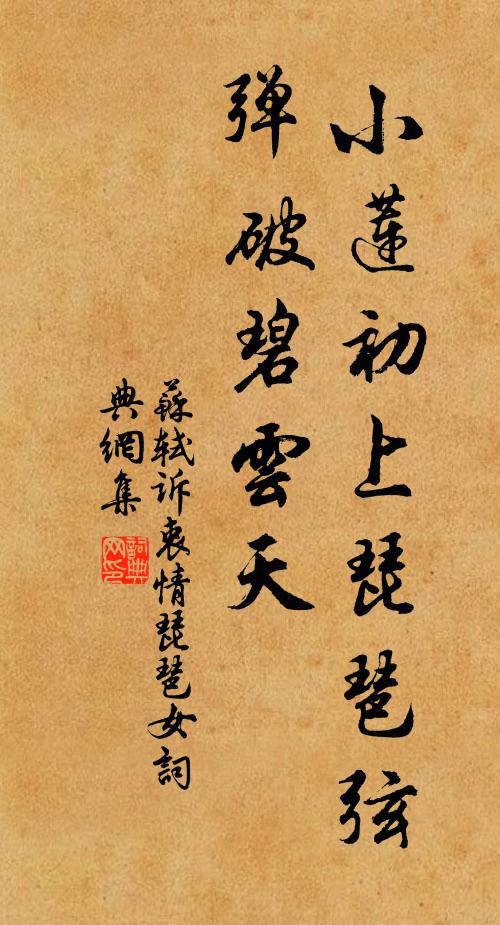 小蓮初上琵琶弦
弹破碧雲天
蘇軾訴衷情琵琶女詞
典網集
詞典
网印